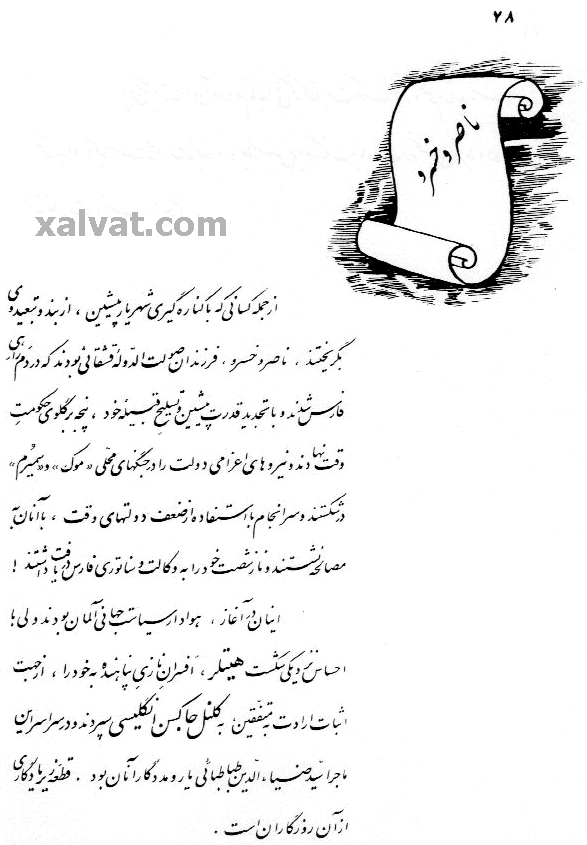 ۲۸
ناصر و خسرو
xalvat.com
از جمله کسانی که با کناره‌گیری شهریار پیشین ، از بند و تبعید وی
بگریختند ، ناصر و خسرو ، فرزندان صولت الدّولهٔ قشقائی بودند که در دَم راهیِ
فارس شدند و با تجدید قدرت پیشین و تسلیح قبیلهٔ خود ، پنجه بر گلوی حکومتِ
وقت نهادند و نیروهای اعزامی دولت را در جنگهای محلّی «موک» و «سمیرُم»
درشکستند و سرانجام با استفاده از ضعف دولتهای وقت ، با آنان به
مصالحه نشستند و ناز شصت خود را به وکالت و سناتوری فارس دریافت داشتند !
اینان در آغاز ، هوادار سیاست جهانی آلمان بودند ولی با
احساس نزدیکی شکست هیتلر ، افسران نازیِ پناهنده به خود را ، از جهت
اثبات ارادت به متفّقین به کلنل جاکسن انگلیسی سپردند و در سراسر این
ماجرا سیّد ضیاء الدّین طباطبائی یار و مددگار آنان بود . قطعهٔ زیر یادگاری
از آن روزگاران است .